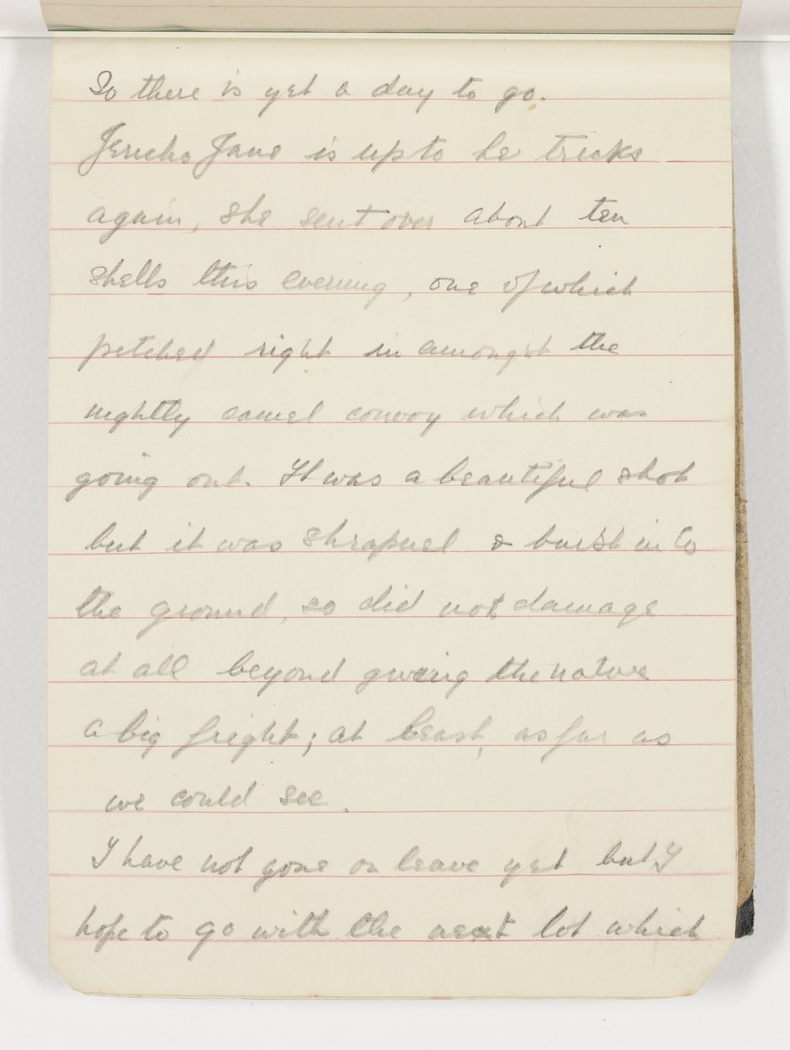 So there is yet a day to go.
Jericho Jane is up to he tricks
again, she sent over about ten
shells this evening, one of which
pitched right in amongst the
nightly camel convoy which was
going out. It was a beautiful shot
but it was shrapnel & burst in to
the ground, so did not damage
at all beyond giving the native
a big fright; at least, as far as
we could see.
I have not gone on leave yet but I
hope to go with the next lot which